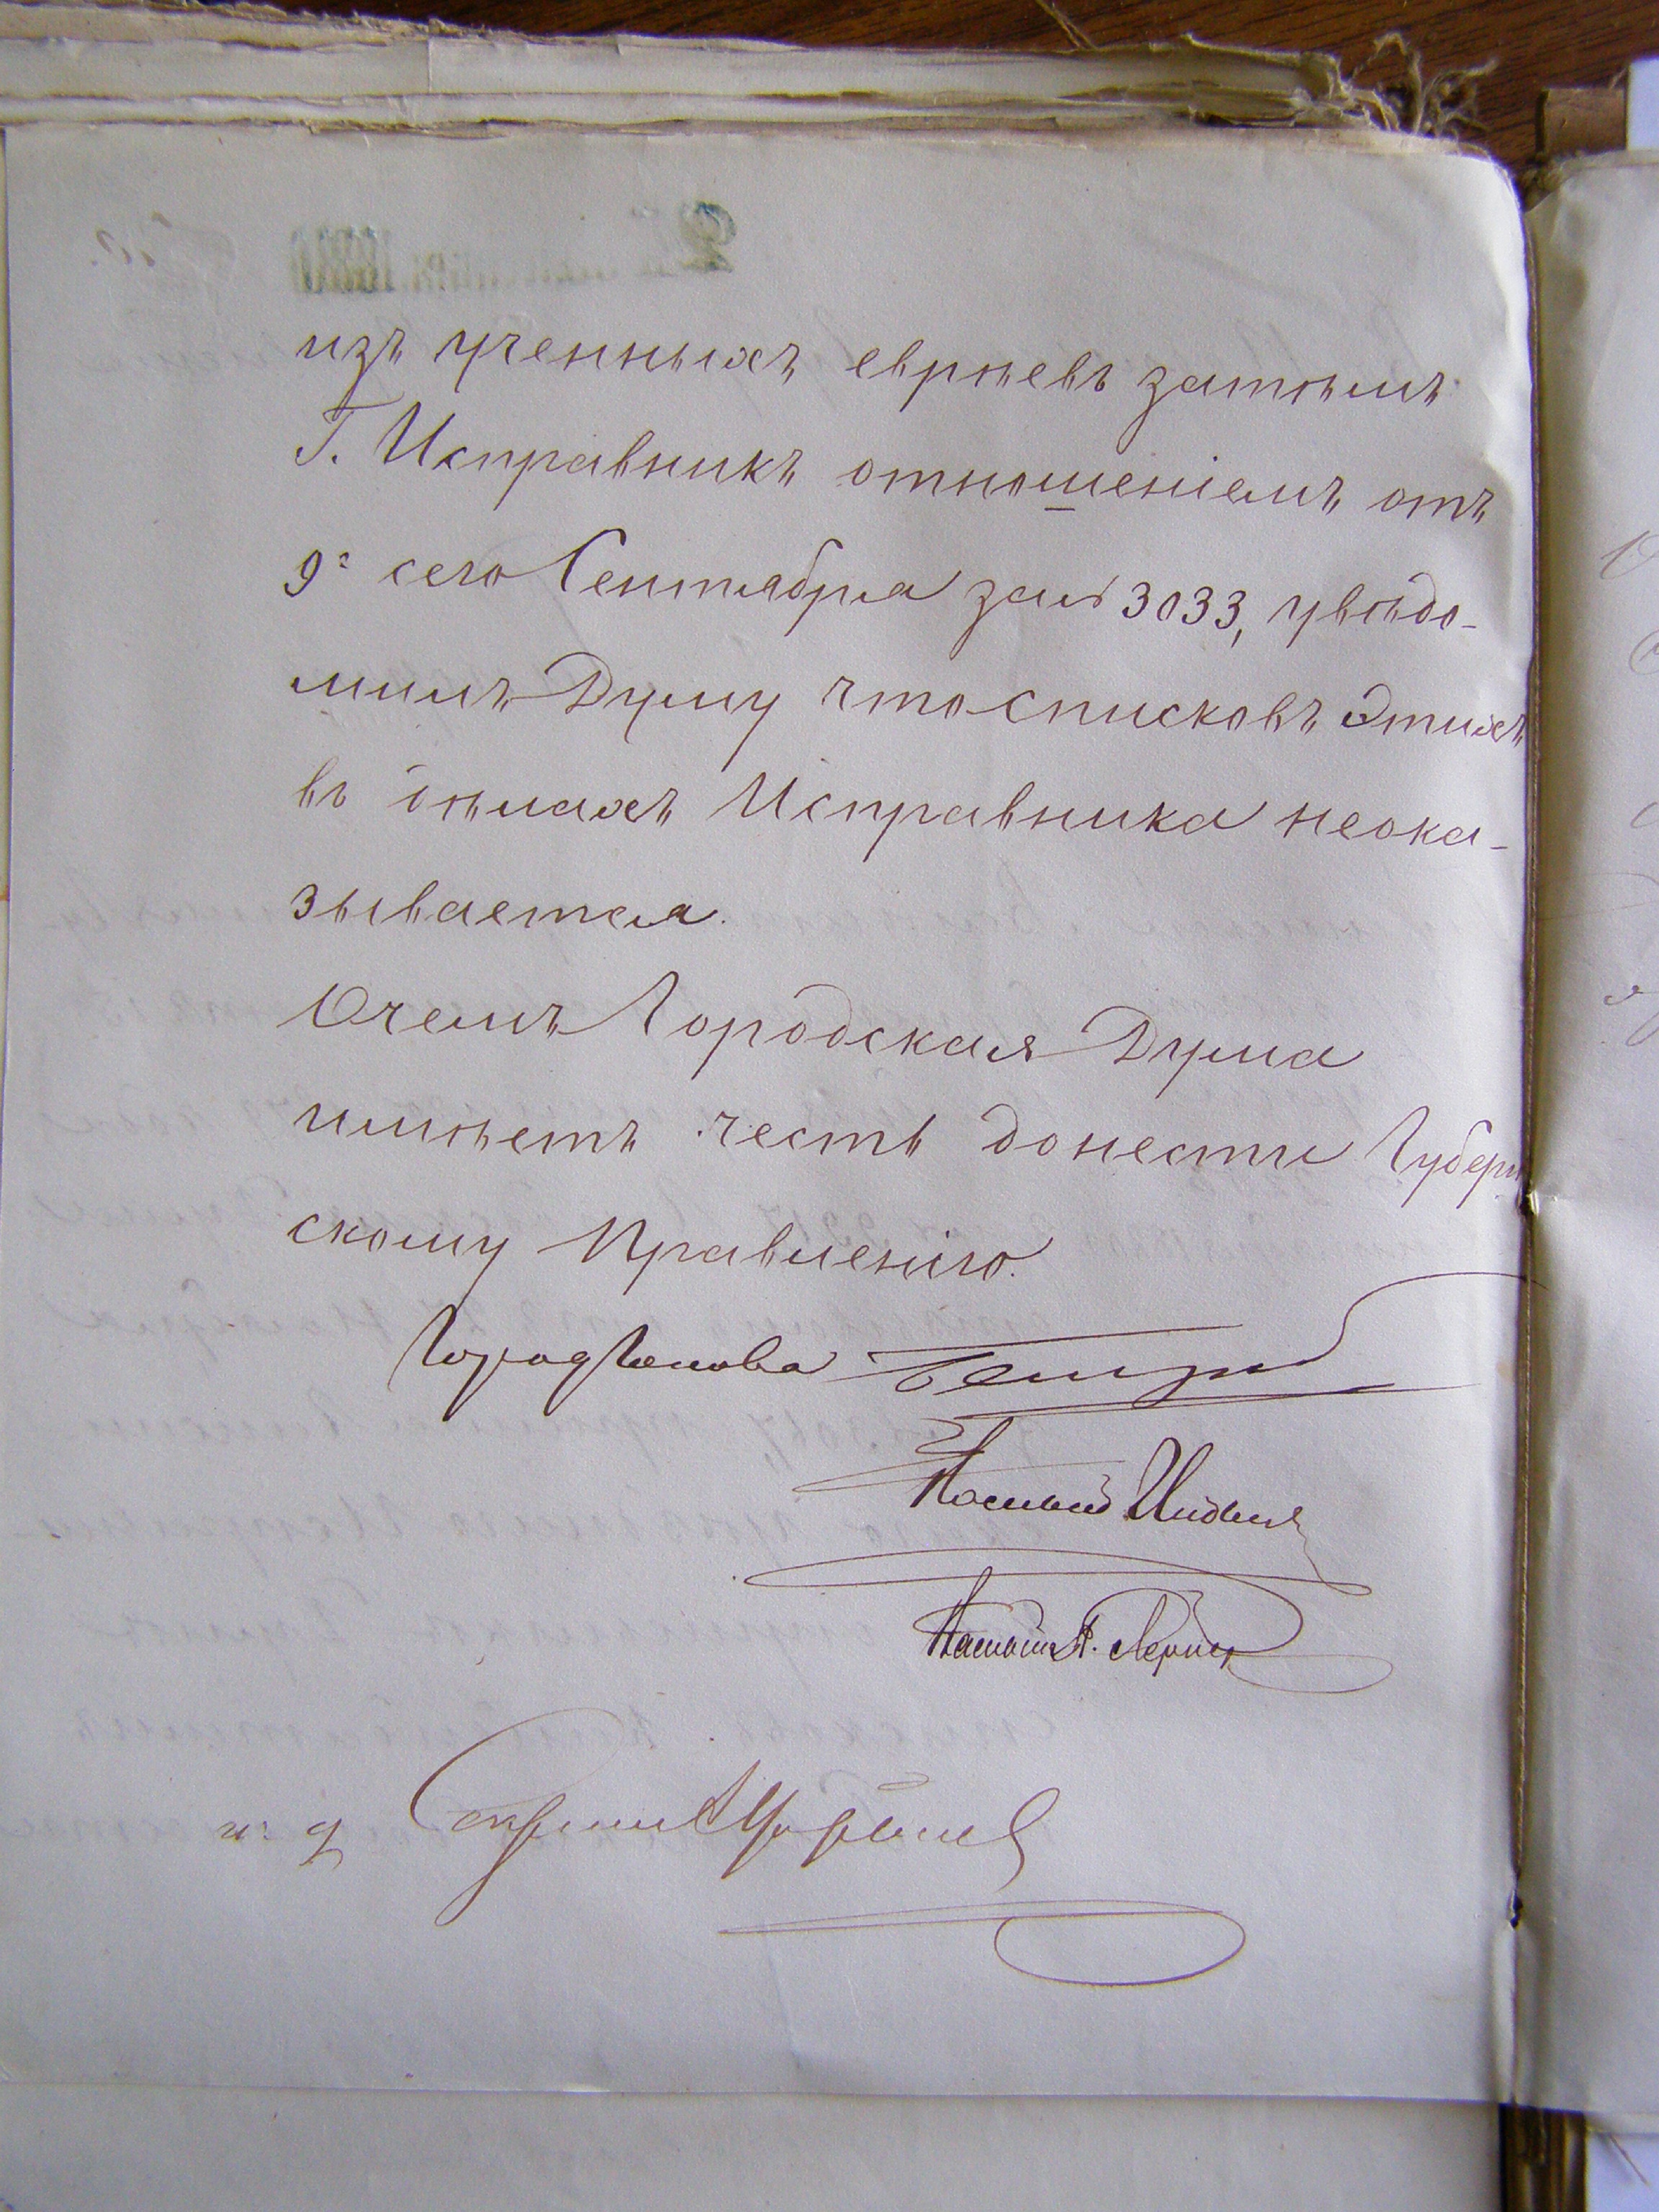 изъ ученныхъ евреѣвъ затѣмъ
Г. Исправникъ отношеніемъ отъ
9 сего Сентября за № 3033, увѣдо-
милъ Думу что списковъ этихъ
въ дѣлахъ Исправника неока-
зывается.
О чемъ Городская Дума
имѣетъ честь донести Губерн
скому Правленію.
Город Голова
Гласный
Гласный Лернер
и. д. Секретаря